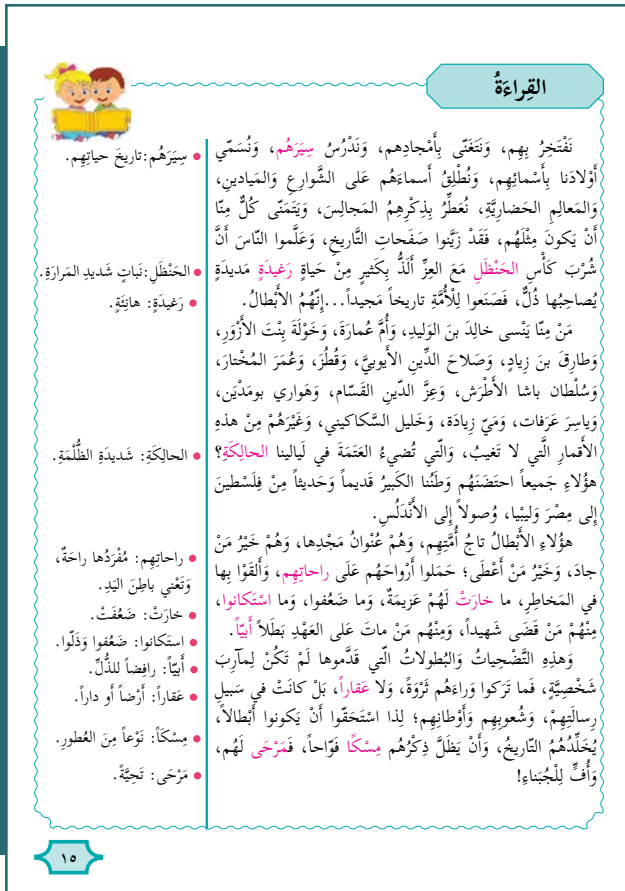 القِراءَةُ
نَفْتَخِرُ بِهِم، وَنَتَغَنّى بِأَمْجادِهم، وَنَدْرُسُ سِيَرَهُم، وَنُسَمّي
أَوْلادَنا بِأَسْمائِهِم، وَنُطْلِقُ أَسماءَهُم عَلى الشَّوارِعِ وَالمَيادينِ،
وَالمَعالِمِ الحَضاريَّةِ، نُعَطِّرُ بِذِكْرِهِمُ المَجالِسَ، وَيَتَمَنّى كُلٌّ مِنّا
أَنْ يَكونَ مِثْلَهُم، فَقَدْ زَيَّنوا صَفَحاتِ التَّاريخِ، وَعَلَّموا النّاسَ أَنَّ
شُرْبَ كَأْسِ الحَنْظَلِ مَعَ العِزِّ أَلَذُّ بِكَثيرٍ مِنْ حَياةٍ رَغيدَةٍ مَديدَةٍ
يُصاحِبُها ذُلٌّ، فَصَنَعوا لِلْأُمَّةِ تاريخاً مَجيداً...إِنَّهُمُ الأَبْطالُ.
مَنْ مِنّا يَنْسى خالِدَ بنَ الوَليدِ، وَأُمَّ عُمارَةَ، وَخَوْلَةَ بِنْتَ الأَزْوَرِ،
وَطارِقَ بنَ زِيادٍ، وَصَلاحَ الدِّينِ الأَيوبيَّ، وَقُطُزَ، وَعُمَرَ المُخْتارَ،
وَسُلْطان باشا الأَطْرَش، وَعِزَّ الدّينِ القَسّام، وَهَواري بومَدْيَن،
وَياسِرَ عَرَفات، وَمَيّ زِيادَة، وَخَليل السَّكاكيني، وَغَيْرَهُمْ مِنْ هذهِ
الأَقمارِ الَّتي لا تَغيبُ، وَالَّتي تُضيءُ العَتَمَةَ في لَيالينا الحالِكَةِ؟
هؤُلاءِ جَميعاً احتَضَنَهُم وَطَنُنا الكَبيرُ قَديماً وَحَديثاً مِنْ فِلَسْطينَ
إِلى مِصْرَ وَليبْيا، وُصولاً إِلى الأَنْدَلُسِ.
هؤُلاءِ الأَبْطالُ تاجُ أُمَّتِهِم، وَهُمْ عُنْوانُ مَجْدِها، وَهُمْ خَيْرُ مَنْ
جادَ، وَخَيْرُ مَنْ أَعْطَى؛ حَمَلوا أَرْواحَهُم عَلَى راحاتِهِم، وَأَلقَوْا بِها
في المَخاطِرِ، ما خارَتْ لَهُمْ عَزيمَةٌ، وَما ضَعُفوا، وَما اسْتَكانوا،
مِنْهُمْ مَنْ قَضَى شَهيداً، وَمِنْهُم مَنْ ماتَ عَلى العَهْدِ بَطَلاً أَبيّاً.
وَهذِهِ التَّضْحِياتُ وَالبُطولاتُ الَّتي قَدَّموها لَمْ تَكُنْ لِمآرِبَ
شَخْصِيَّةٍ، فَما تَرَكوا وَراءَهُم ثَرْوَةً، وَلا عَقاراً، بَلْ كانَتْ في سَبيلِ
رِسالَتِهِمْ، وَشُعوبِهِم وَأَوْطانِهِم؛ لِذا اسْتَحَقّوا أَنْ يَكونوا أَبْطالاً،
يُخَلِّدُهُمُ التّاريخُ، وَأَنْ يَظَلَّ ذِكْرُهُم مِسْكًا فَوّاحاً، فَمَرْحَى لَهُم،
وَأُفٍّ لِلْجُبَناءِ!
• سِيَرَهُم:تاريخَ حياتِهِم.
• الحَنْظَلِ:نَباتٍ شَديدِ المَرارَةِ.
• رَغيدَةٍ: هانِئَةٍ.
• الحالِكَةِ: شَديدَةِ الظُّلْمَةِ.
• راحاتِهِم: مُفْرَدُها راحَةٌ،
وَتَعْني باطِنَ اليَدِ.
• خارَتْ: ضَعُفَتْ.
• استَكانوا: ضَعُفوا وَذَلّوا.
• أَبيّاً: رافِضاً للذُّلِّ.
• عَقاراً: أَرْضاً أَو داراً.
• مِسْكَاً: نَوْعاً مِنَ العُطورِ.
• مَرْحَى: تَحِيَّةً.
١٥